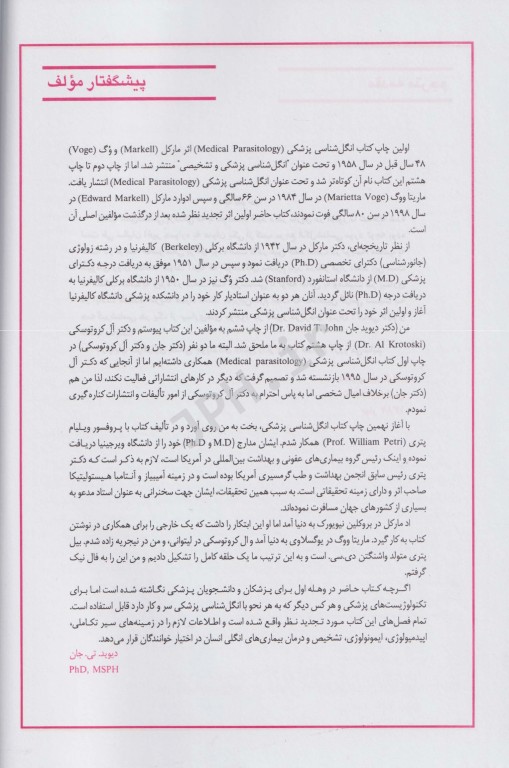 پیشگفتار مؤلف
اولین چاپ کتاب انگل‌شناسی پزشکی (Medical Parasitology) اثر مارکل (Markell) و وُگ (Voge)
۴۸ سال قبل در سال ۱۹۵۸ و تحت عنوان "انگل‌شناسی پزشکی و تشخیصی" منتشر شد. اما از چاپ دوم تا چاپ
هشتم این کتاب نام آن کوتاه‌تر شد و تحت عنوان انگل‌شناسی پزشکی (Medical Parasitology) انتشار یافت.
ماریتا ووگ (Marietta Voge) در سال ۱۹۸۴ در سن ۶۶ سالگی و سپس ادوارد مارکل (Edward Markell) در
سال ۱۹۹۸ در سن ۸۰ سالگی فوت نمودند، کتاب حاضر اولین اثر تجدید نظر شده بعد از درگذشت مؤلفین اصلی آن
است.
از نظر تاریخچه‌ای، دکتر مارکل در سال ۱۹۴۲ از دانشگاه برکلی (Berkeley) کالیفرنیا و در رشته زولوژی
(جانورشناسی) دکترای تخصصی (Ph.D) دریافت نمود و سپس در سال ۱۹۵۱ موفق به دریافت درجه دکترای
پزشکی (M.D) از دانشگاه استانفورد (Stanford) شد. دکتر وُگ نیز در سال ۱۹۵۰ از دانشگاه برکلی کالیفرنیا به
دریافت درجه (Ph.D) نائل گردید. آنان هر دو به عنوان استادیار کار خود را در دانشکده پزشکی دانشگاه کالیفرنیا
آغاز و اولین اثر خود را تحت عنوان انگل‌شناسی پزشکی منتشر کردند.
من (دکتر دیوید جان Dr. David T. John) از چاپ ششم به مؤلفین این کتاب پیوستم و دکتر آل کروتوسکی
(Dr. Al Krotoski) از چاپ هشتم کتاب به ما ملحق شد. البته ما دو نفر (دکتر جان و دکتر آل کروتوسکی) در
چاپ اول کتاب انگل‌شناسی پزشکی (Medical parasitology) همکاری داشته‌ایم اما از آنجایی که دکتر آل
کروتوسکی در سال ۱۹۹۵ بازنشسته شد و تصمیم گرفت که دیگر در کارهای انتشاراتی فعالیت نکند، لذا من هم
(دکتر جان) برخلاف امیال شخصی اما به پاس احترام به دکتر آل کروتوسکی از امور تألیفات و انتشارات کناره گیری
نمودم.
با آغاز نهمین چاپ کتاب انگل‌شناسی پزشکی، بخت به من روی آورد و در تألیف کتاب با پروفسور ویلیام
پتری (Prof. William Petri) همکار شدم. ایشان مدارج (M.D و Ph.D) خود را از دانشگاه ویرجینیا دریافت
نموده و اینک رئیس گروه بیماری‌های عفونی و بهداشت بین‌المللی در آمریکا است، لازم به ذکر است که دکتر
پتری رئیس سابق انجمن بهداشت و طب گرمسیری آمریکا بوده است و در زمینه آمیبیاز و آنتامبا هیستولیتیکا
صاحب اثر و دارای زمینه تحقیقاتی است. به سبب همین تحقیقات، ایشان جهت سخنرانی به عنوان استاد مدعو به
بسیاری از کشورهای جهان مسافرت نموده‌اند.
اد مارکل در بروکلین نیویورک به دنیا آمد اما او این ابتکار را داشت که یک خارجی را برای همکاری در نوشتن
کتاب به کار گیرد. ماریتا ووگ در یوگسلاوی به دنیا آمد و ال کروتوسکی در لیتوانی، و من در نیجریه زاده شدم. بیل
پتری متولد واشنگتن دی.سی. است و به این ترتیب ما یک حلقه کامل را تشکیل دادیم و من این را به فال نیک
گرفتم.
اگرچه کتاب حاضر در وهله اول برای پزشکان و دانشجویان پزشکی نگاشته شده است اما برای
تکنولوژیست‌های پزشکی و هر کس دیگر که به هر نحو با انگل‌شناسی پزشکی سر و کار دارد قابل استفاده است.
تمام فصل‌های این کتاب مورد تجدید نظر واقع شده است و اطلاعات لازم را در زمینه‌های سیر تکاملی،
اپیدمیولوژی، ایمونولوژی، تشخیص و درمان بیماری‌های انگلی انسان در اختیار خوانندگان قرار می‌دهد.
دیوید. تی. جان
PhD, MSPH